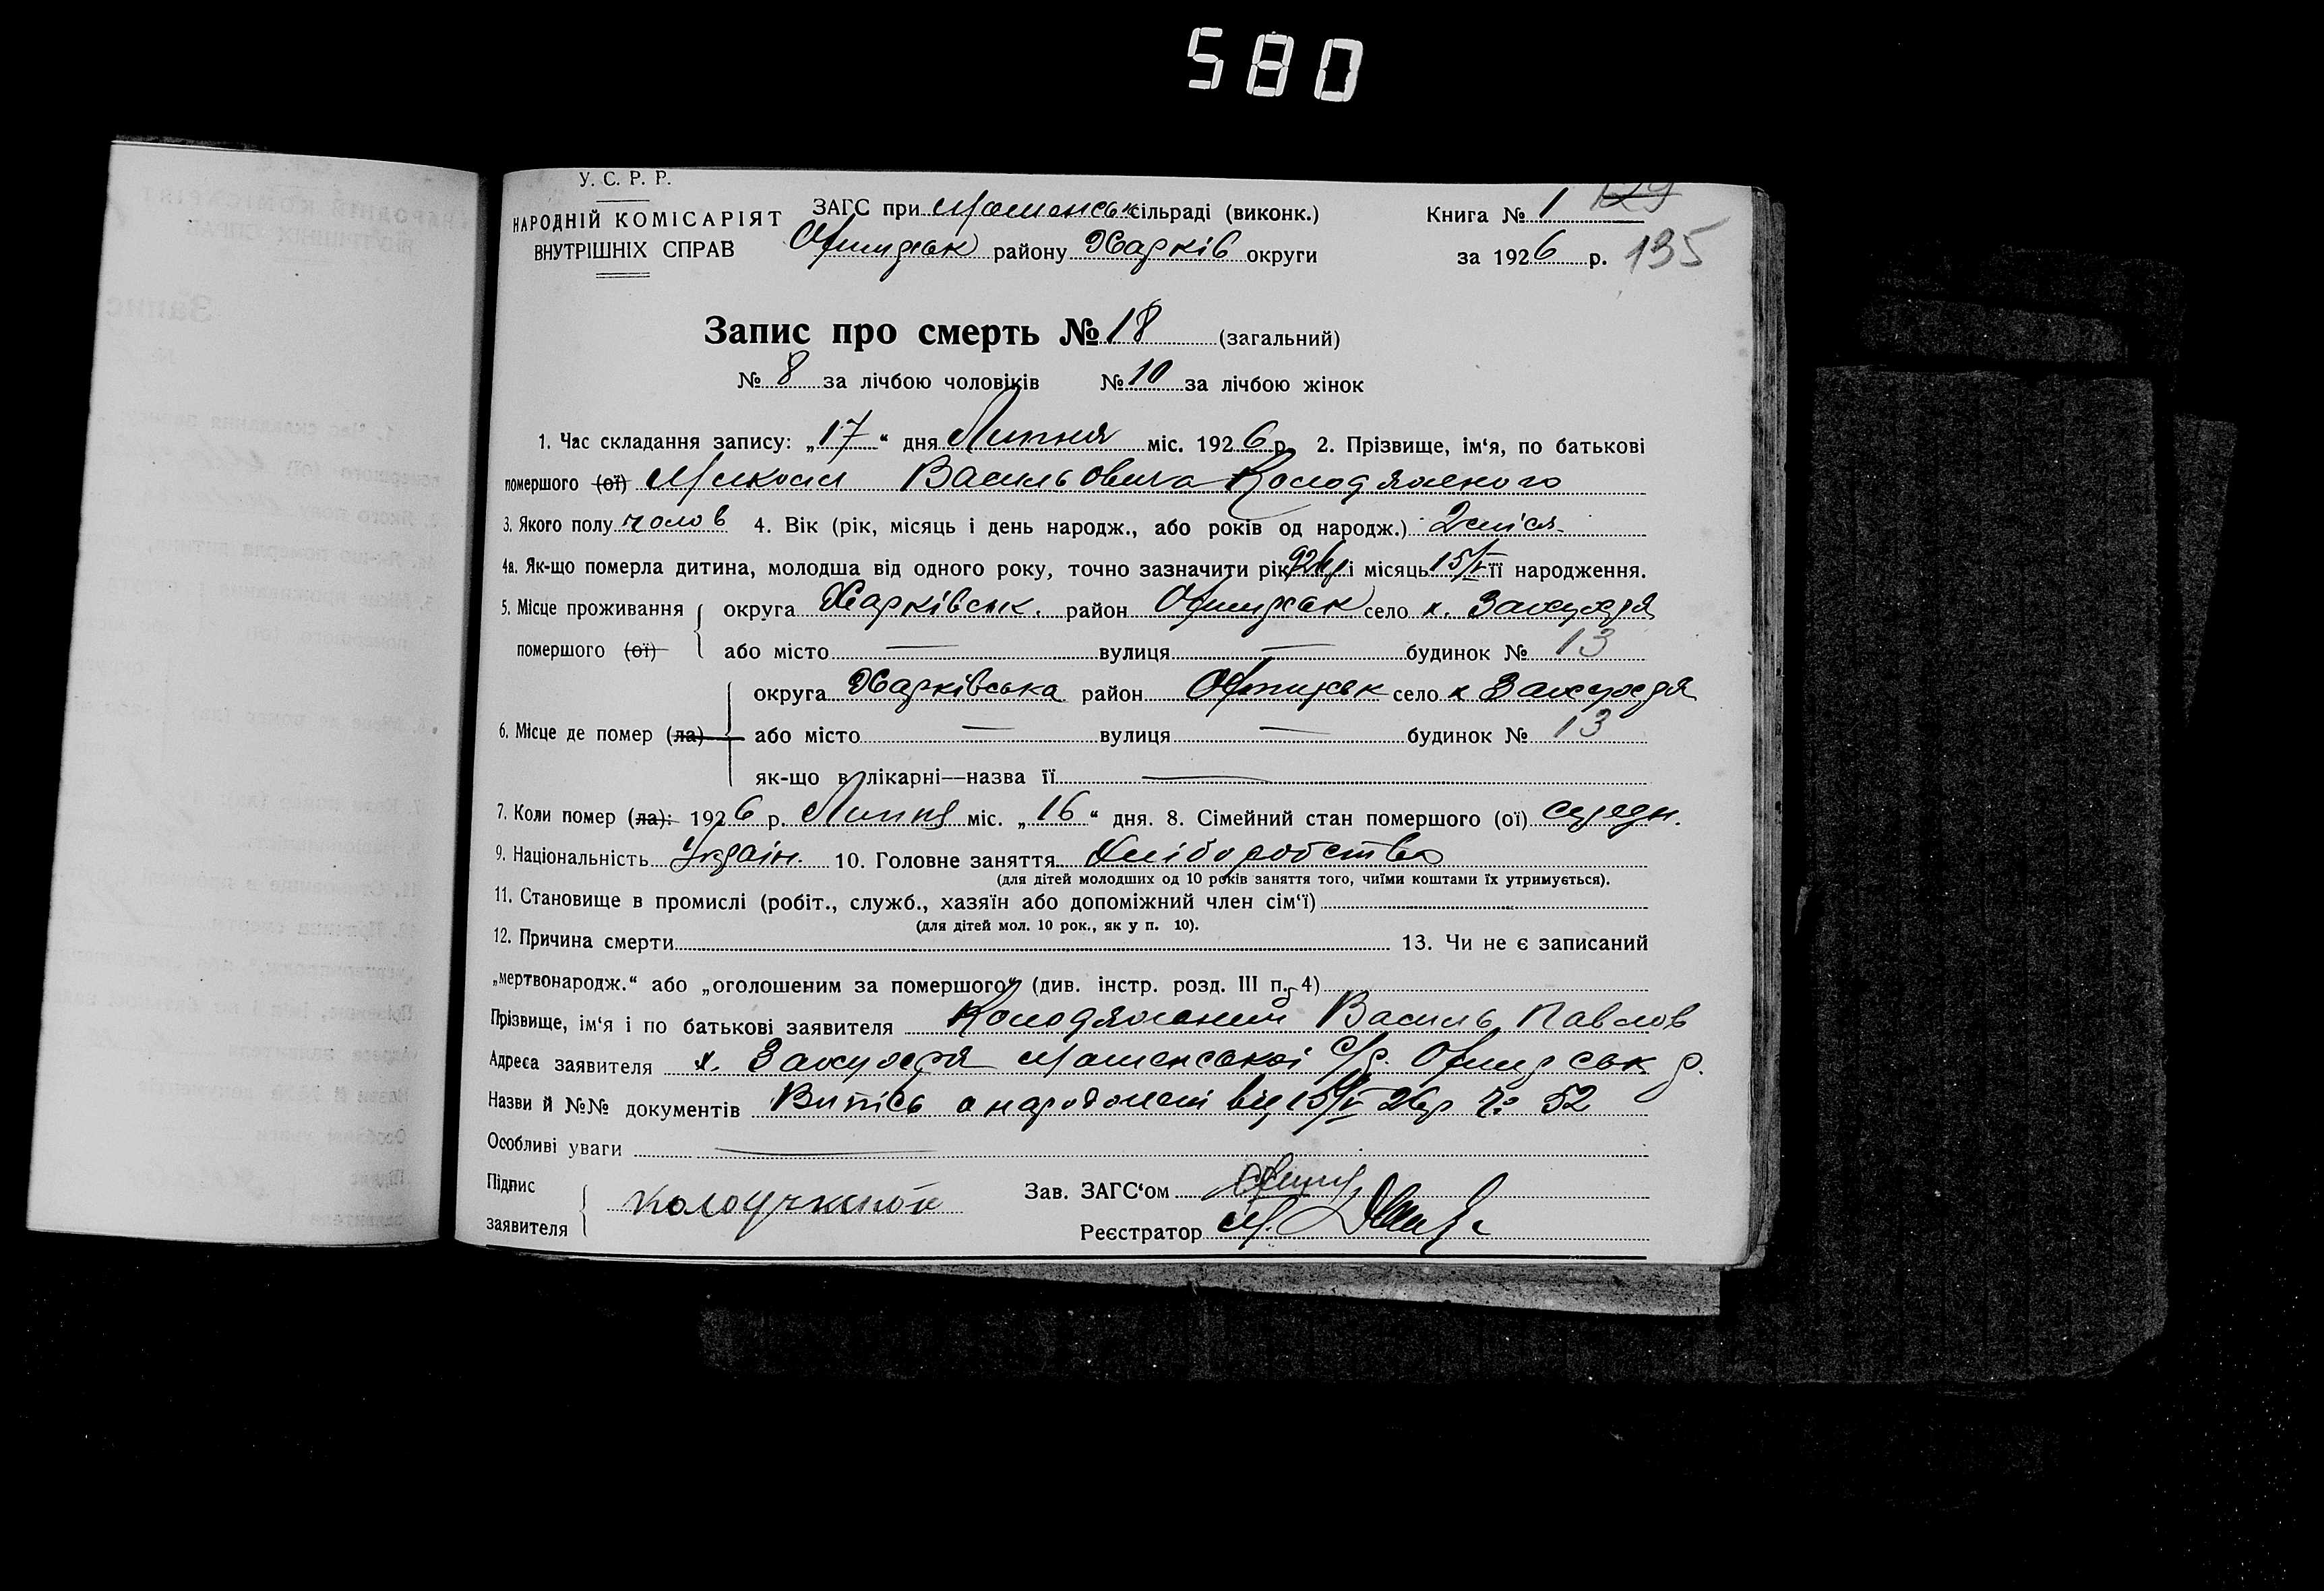 580
У. С. Р. Р.
НАРОДНІЙ КОМІСАРІЯТ
ВНУТРІШНІХ СПРАВ
ЗАГС при сільраді (виконк.)
району Харків округи
Книга № 1 129
за 1926 р. 135
Запис про смерть № 18 (загальний)
№ 8 за лічбою чоловіків № 10 за лічбою жінок
1. Час складання запису: „17“ дня Липня міс. 1926 р. 2. Прізвище, ім‘я, по батькові
помершого (ої) Миколи Васильовича Колодяжного
3. Якого полу чолов 4. Вік (рік, місяць і день народж., або років од народж.) 2 міся.
4а. Як-що померла дитина, молодша від одного року, точно зазначити рік 926 р і місяць 15/V її народження.
5. Місце проживання помершого (ої) округа Харківськ. район село х.
або місто — вулиця — будинок № 13
6. Місце де помер (ла) округа Харківська район село х
або місто — вулиця — будинок № 13
як-що в лікарні—назва її —
7. Коли помер (ла): 1926 р. Липня міс. „16“ дня. 8. Сімейний стан помершого (ої) середн.
9. Національність Україн. 10. Головне заняття Хліборобство
(для дітей молодших од 10 років заняття того, чиїми коштами їх утримується).
11. Становище в промислі (робіт., служб., хазяїн або допоміжний член сім‘ї)
(для дітей мол. 10 рок., як у п. 10).
12. Причина смерти 13. Чи не є записаний
„мертвонародж.“ або „оголошеним за помершого“ (див. інстр. розд. III п. 4)
Прізвище, ім‘я і по батькові заявителя Колодяжний Василь Павлов
Адреса заявителя х. с/р. р.
Назви й №№ документів Витісь о народжені від 15/V 26 р № 52
Особливі уваги —
Підпис заявителя
Зав. ЗАГС‘ом
Реєстратор